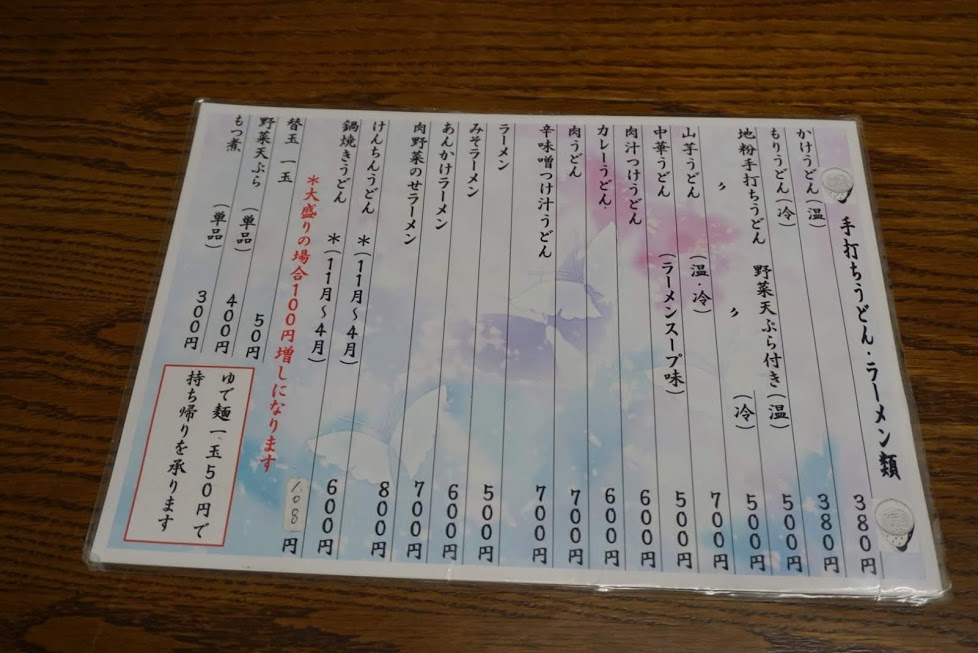 手打ちうどん・ラーメン類
かけうどん（温） 380円
もりうどん（冷） 380円
地粉手打ちうどん 野菜天ぷら付き（温） 500円
〃 〃 （冷） 500円
山芋うどん（温・冷） 700円
中華うどん（ラーメンスープ味） 500円
肉汁つけうどん 600円
カレーうどん 600円
肉うどん 700円
辛味噌つけ汁うどん 700円
ラーメン 500円
みそラーメン 600円
あんかけラーメン 700円
肉野菜のせラーメン 800円
けんちんうどん ＊（11月～4月） 600円
鍋焼きうどん ＊（11月～4月） 円
＊大盛りの場合100円増しになります
替玉 一玉 50円
野菜天ぷら （単品） 400円
もつ煮 （単品） 300円
ゆで麺一玉50円で
持ち帰りを承ります